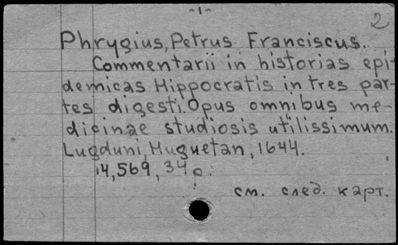 -1-
2
Phrygius, Petrus Franciscus.
Commentarii in historias epi-
demicas Hippocratis in tres par-
tes digesti. Opus omnibus me-
dicinae studiosis utilissimum.
Lugduni, Huguetan, 1644.
14, 569, 34 p.
см. след. карт.